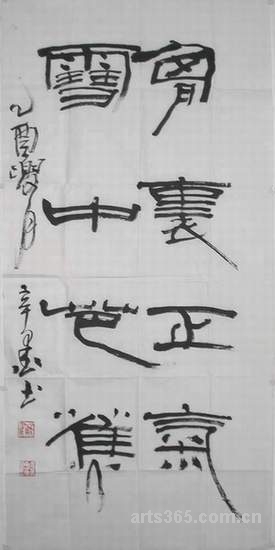 胷裏正氣
雪中芭蕉
乙酉臘月
辛墨
arts365.com.cn